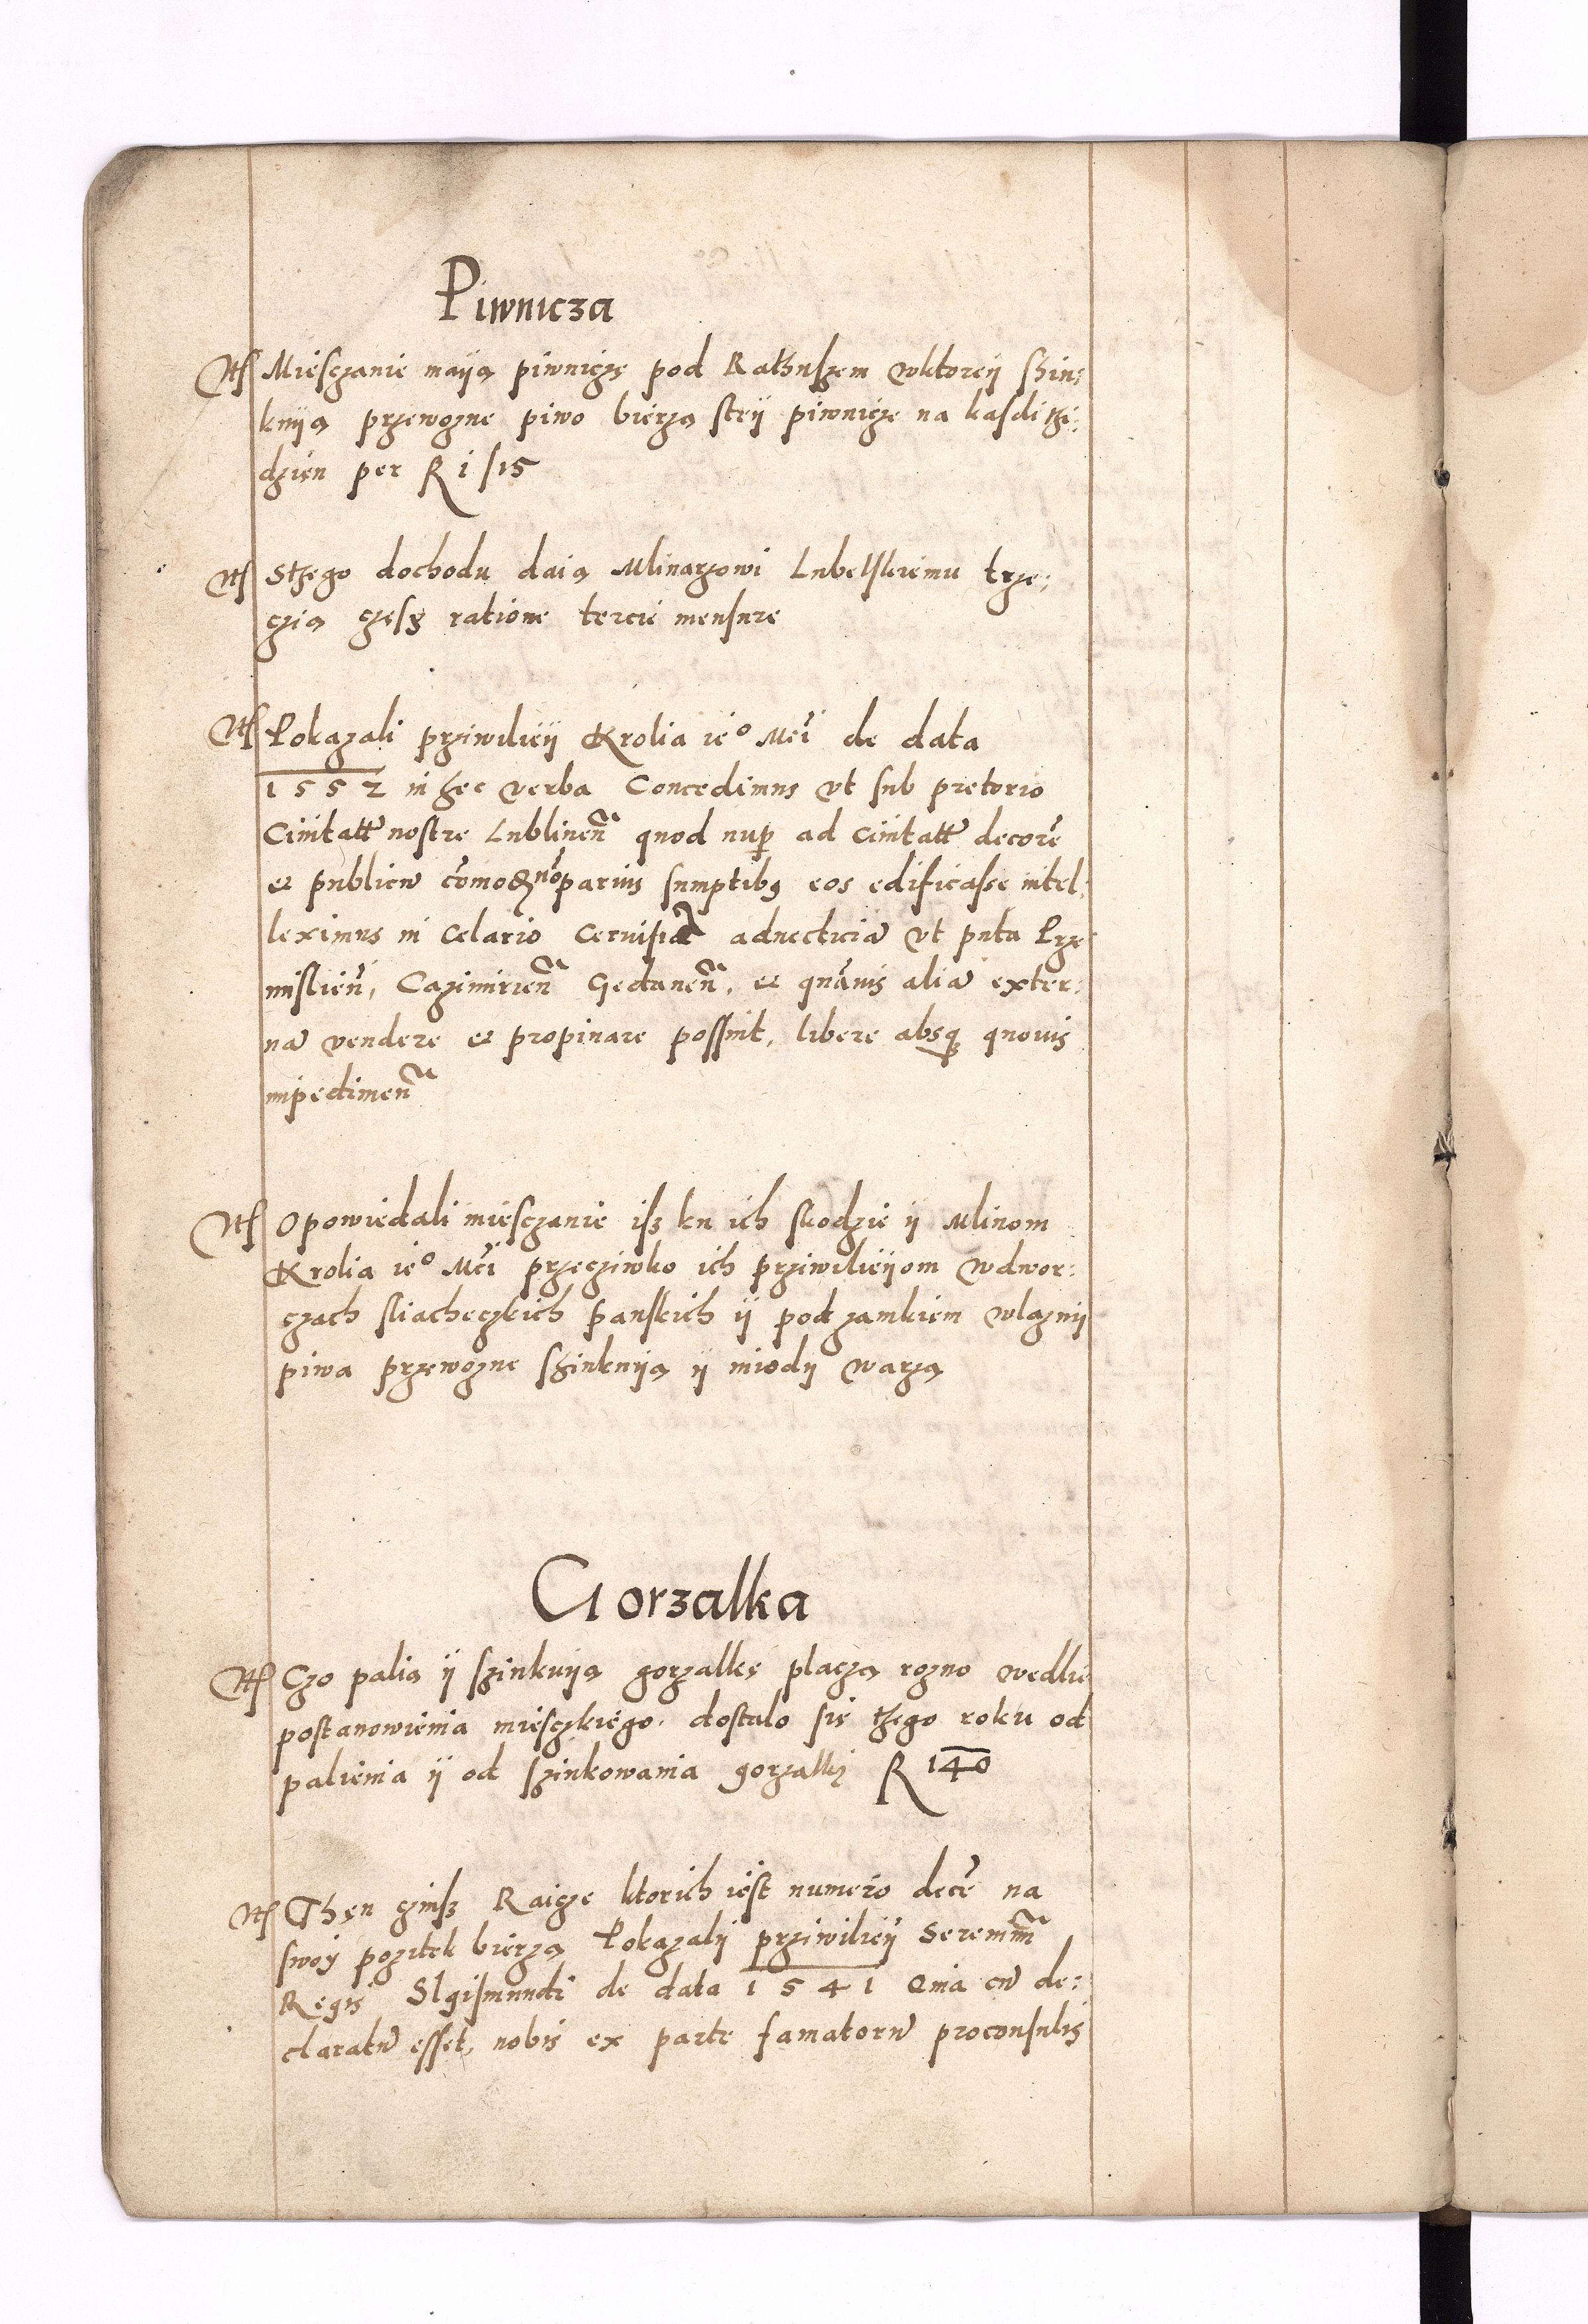 Piwnicza
Itē Miesczanie maiją piwniczę pod Rathuszem wktoreij szin:
kuiją przewozne piwo bierzą steij piwnicze na kasdi thi:
dzien per R 1 / 15
Itē Sthego dochodu daią Mlinarzowi Lubelskiemu trze:
czią częsz ratione tercie mensure
Itē Pokazali prziwileij Krolia ieº Mči de data
1552 in hec verba Concedimus vt sub pretorio
Ciuitatis nostre Lublinēn quod nuꝑ ad Ciuitatis decorē
et publicū cōmodū nō paruis sumptibꝯ eos edificasse intel:
leximus in Celario Ceruisiā aduecticiā vt puta Prze
mislieñ, Cazimirieñ Gedaneñ, et quāuis aliā exter:
nā vendere et propinare possint, libere absqꝫ quouis
impedimeñ
Itē Opowiedali miesczanie isz ku ich skodzie ij Mlinom
Krolia ieº Mči przecziwko ich prziwileijom wdwor:
czach sliacheczkich panskich ij pod zamkiem wlazni
piwa przewozne szinkuiją ij miodij warzą
Gorzalka
Itē Czo palią ij szinkuiją gorzalkę placzą rozno wedlie
postanowienia miesczkiego. dostalo się thego roku od
palienia ij od szinkowania gorzalki R 140
Itē Then czinsz Raicze ktorich iest numero decē na
swoÿ pozitek bierzą Pokazalij prziwileij Serenimi
Regis SIgismundi de data 1541 Quia cū de:
claratū esset, nobis ex parte famatorū proconsulis